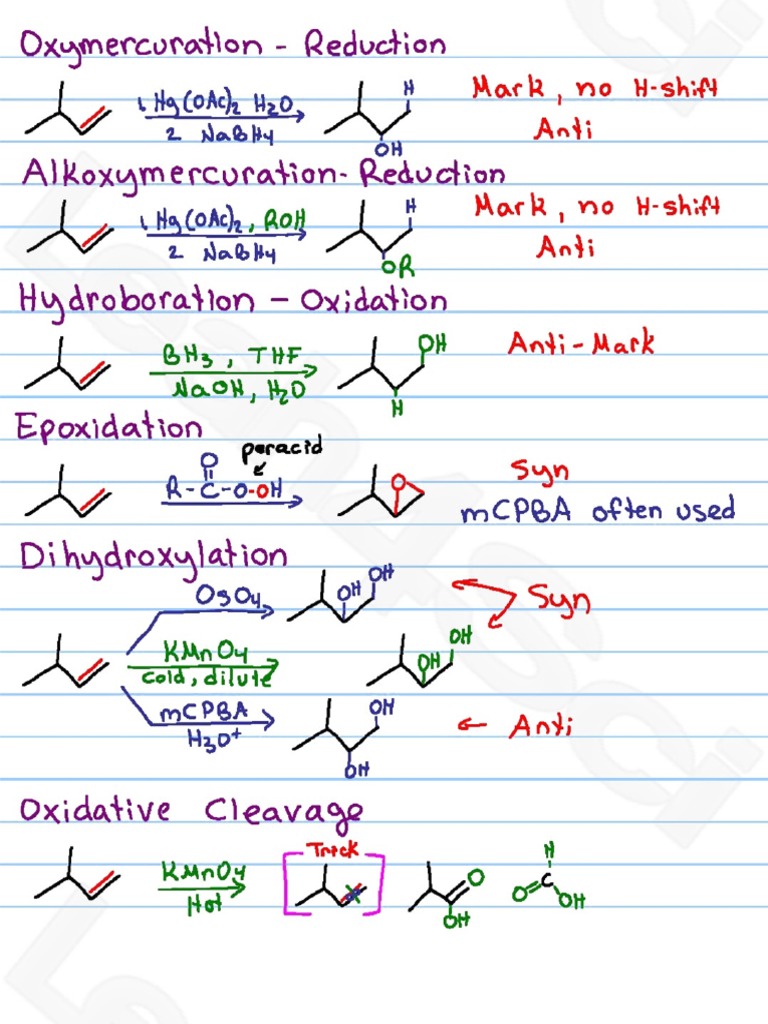 Oxymercuration - Reduction
1, Hg(OAc)2 H2O
2 NaBH4
H
OH
Mark, no H-shift
Anti
Alkoxymercuration-Reduction
1, Hg(OAc)2, ROH
2 NaBH4
H
OR
Mark, no H-shift
Anti
Hydroboration - Oxidation
BH3, THF
NaOH, H2O
OH
H
Anti-Mark
Epoxidation
peracid
O
R-C-O-OH
O
Syn
mCPBA often used
Dihydroxylation
OsO4
OH OH
Syn
KMnO4
cold, dilute
OH
OH
mCPBA
H3O+
OH
OH
Anti
Oxidative Cleavage
KMnO4
Hot
Trick
O
OH
H
O C OH
Leah4Sci